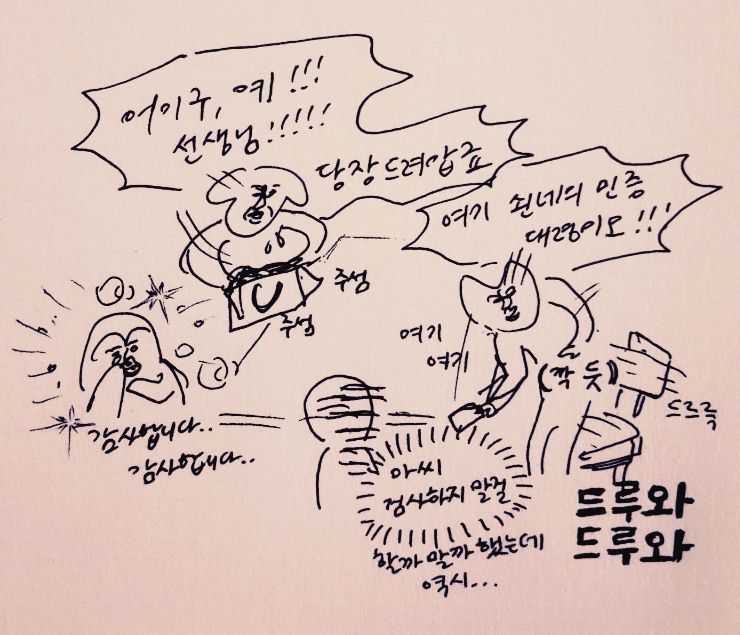 어이구, 예!!!
선생님!!!!!
당장드려압죠
여기 쇤네의 인증
대령이오!!!
주섬
주섬
여기
여기
(깍듯)
드르륵
감사합니다..
감사합니다..
아씨
검사하지 말걸
할까 말까 했는데
역시...
드루와
드루와